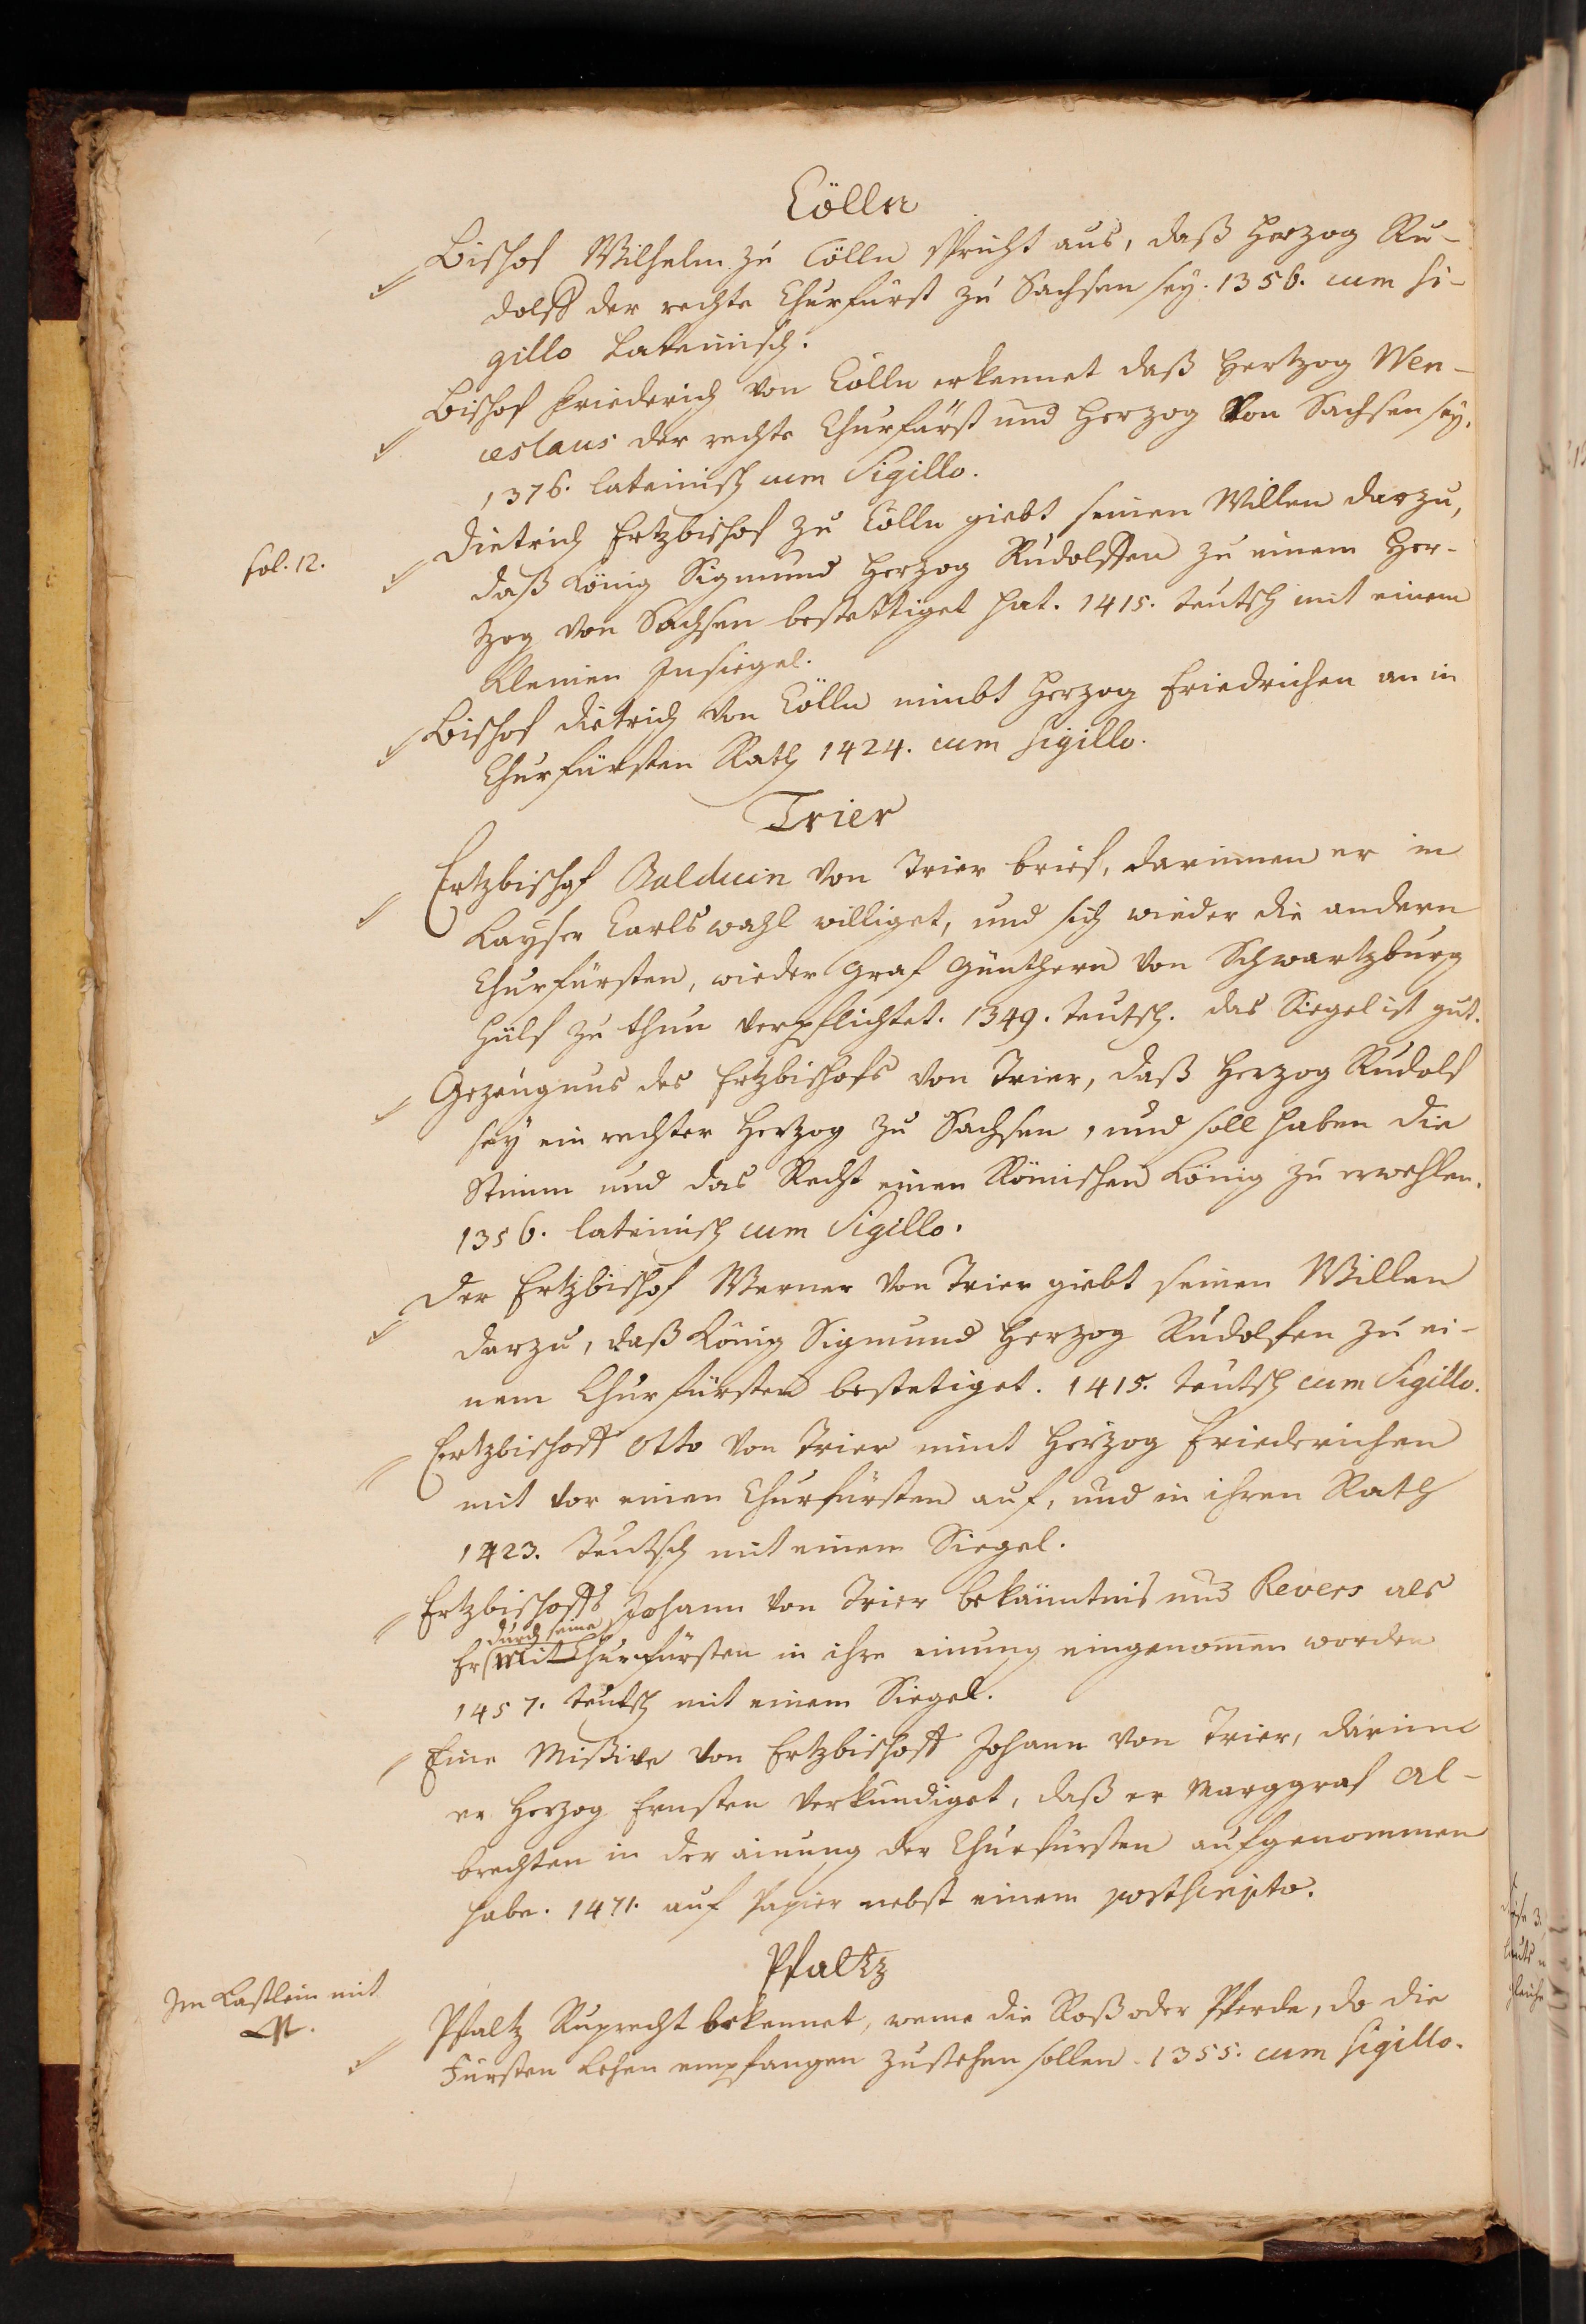 Cölln
Bischof Wilhelm zu Cölln spricht aus, daß Herzog Ru-
dolff der rechte Churfürst zu Sachsen sey. 1356. cum si-
gillo Lateinisch.
Bischof Friederich von Cölln erkennet daß Hertzog Wen-
ceslaus der rechte Churfürst und Herzog von Sachsen sey.
1376. lateinisch cum Sigillo.
fol. 12.
Dietrich Ertzbischof zu Cölln giebt seinen Willen darzu,
daß König Sigmund Herzog Rudolffen zu einem Her-
tzog von Sachsen bestettiget hat. 1415. teutsch mit einem
kleinen Insiegel.
Bischof Dietrich von Cölln nimbt Herzog Friedrichen an in
Churfürsten Rath 1424. cum sigillo.
Trier
Ertzbischof Balduin von Trier brief, darinnen er in
Kayser Carls wahl williget, und sich wieder die andern
Churfürsten, wieder Graf Günthern von Schwartzburg
Hülf zu thun verpflichtet. 1349. teutsch. das Siegel ist gut.
Gezeugnus des Ertzbischofs von Trier, daß Herzog Rudolf
sey ein rechter Herzog zu Sachsen, und soll haben die
Stimm und das Recht einen Römischen König zu erwehlen.
1356. lateinisch cum Sigillo.
Der Ertzbischof Werner von Trier giebt seinen Willen
darzu, daß König Sigmund Herzog Rudolfen zu ei-
nem Churfürsten bestetiget. 1415. teutsch cum Sigillo.
Ertzbischoff Otto von Trier nimt Herzog Friederichen
mit vor einen Churfürsten auf, und in ihren Rath
1423. Teutsch mit einem Siegel.
Ertzbischoffs Johann von Trier bekäntnis und Revers als
durch seine
Er Mit Churfürsten in ihre einung eingenomen worden
1457. teutsch mit einem Siegel.
Eine Mißive von Ertzbischoff Johann von Trier, darinne
er Herzog Ernsten verkundiget, daß er Marggraf Al-
brechten in der ainung der Churfürsten aufgenommen
habe. 1471. auf Papier nebst einem postscripto.
Pfaltz
Im Kastlein mit
Pfaltz Ruprecht bekennet, weme die Roß oder Pferde, do die
Fürsten Lehen empfangen zustehen sollen. 1355. cum sigillo.